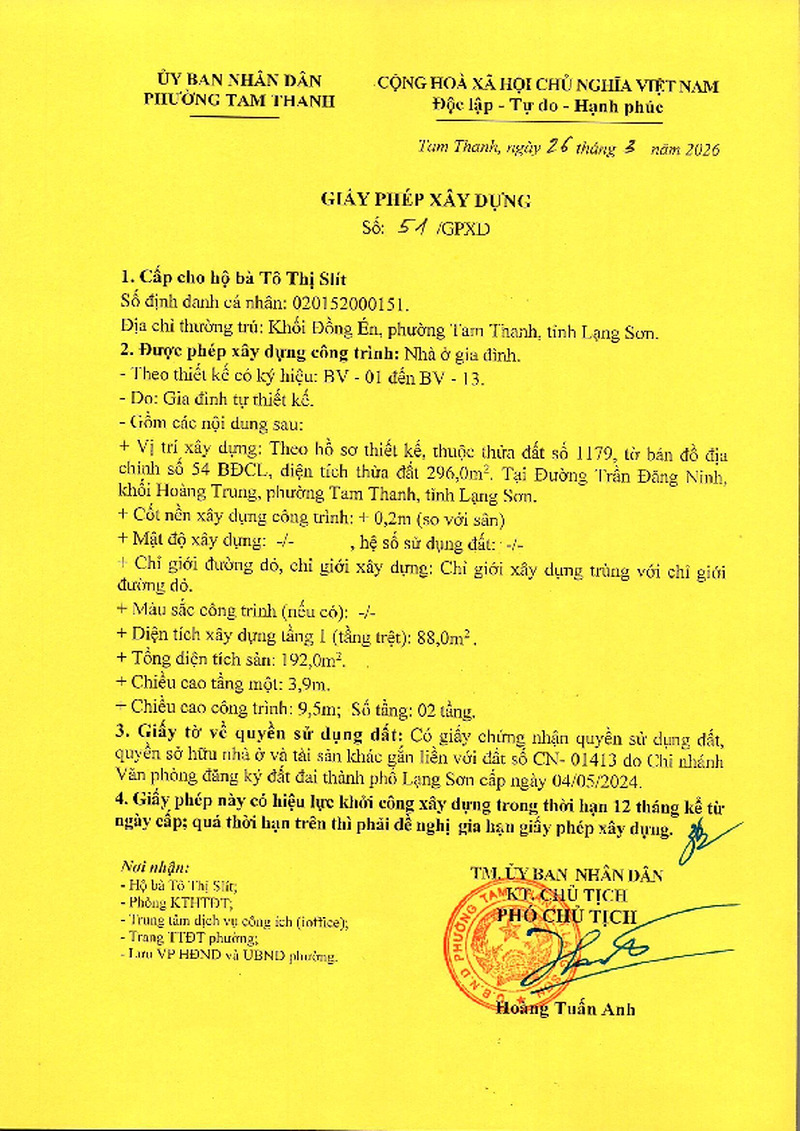 ỦY BAN NHÂN DÂN
PHƯỜNG TAM THANH
CỘNG HOÀ XÃ HỘI CHỦ NGHĨA VIỆT NAM
Độc lập - Tự do - Hạnh phúc
Tam Thanh, ngày 26 tháng 3 năm 2026
GIẤY PHÉP XÂY DỰNG
Số: 51 /GPXD
1. Cấp cho hộ bà Tô Thị Slít
Số định danh cá nhân: 020152000151.
Địa chỉ thường trú: Khối Đồng Én, phường Tam Thanh, tỉnh Lạng Sơn.
2. Được phép xây dựng công trình: Nhà ở gia đình.
- Theo thiết kế có ký hiệu: BV - 01 đến BV - 13.
- Do: Gia đình tự thiết kế.
- Gồm các nội dung sau:
+ Vị trí xây dựng: Theo hồ sơ thiết kế, thuộc thửa đất số 1179, tờ bản đồ địa
chính số 54 BĐCL, diện tích thửa đất 296,0m². Tại Đường Trần Đăng Ninh,
khối Hoàng Trung, phường Tam Thanh, tỉnh Lạng Sơn.
+ Cốt nền xây dựng công trình: + 0,2m (so với sân)
+ Mật độ xây dựng: -/- , hệ số sử dụng đất: -/-
+ Chỉ giới đường đỏ, chỉ giới xây dựng: Chỉ giới xây dựng trùng với chỉ giới
đường đỏ.
+ Màu sắc công trình (nếu có): -/-
+ Diện tích xây dựng tầng 1 (tầng trệt): 88,0m².
+ Tổng diện tích sàn: 192,0m².
+ Chiều cao tầng một: 3,9m.
+ Chiều cao công trình: 9,5m; Số tầng: 02 tầng.
3. Giấy tờ về quyền sử dụng đất: Có giấy chứng nhận quyền sử dụng đất,
quyền sở hữu nhà ở và tài sản khác gắn liền với đất số CN- 01413 do Chi nhánh
Văn phòng đăng ký đất đai thành phố Lạng Sơn cấp ngày 04/05/2024.
4. Giấy phép này có hiệu lực khởi công xây dựng trong thời hạn 12 tháng kể từ
ngày cấp; quá thời hạn trên thì phải đề nghị gia hạn giấy phép xây dựng.
Nơi nhận:
- Hộ bà Tô Thị Slít;
- Phòng KTHTĐT;
- Trung tâm dịch vụ công ích (ioffice);
- Trang TTĐT phường;
- Lưu VP HĐND và UBND phường.
TM. ỦY BAN NHÂN DÂN
KT. CHỦ TỊCH
PHÓ CHỦ TỊCH
U.B.N.D PHƯỜNG TAM
Hoàng Tuấn Anh